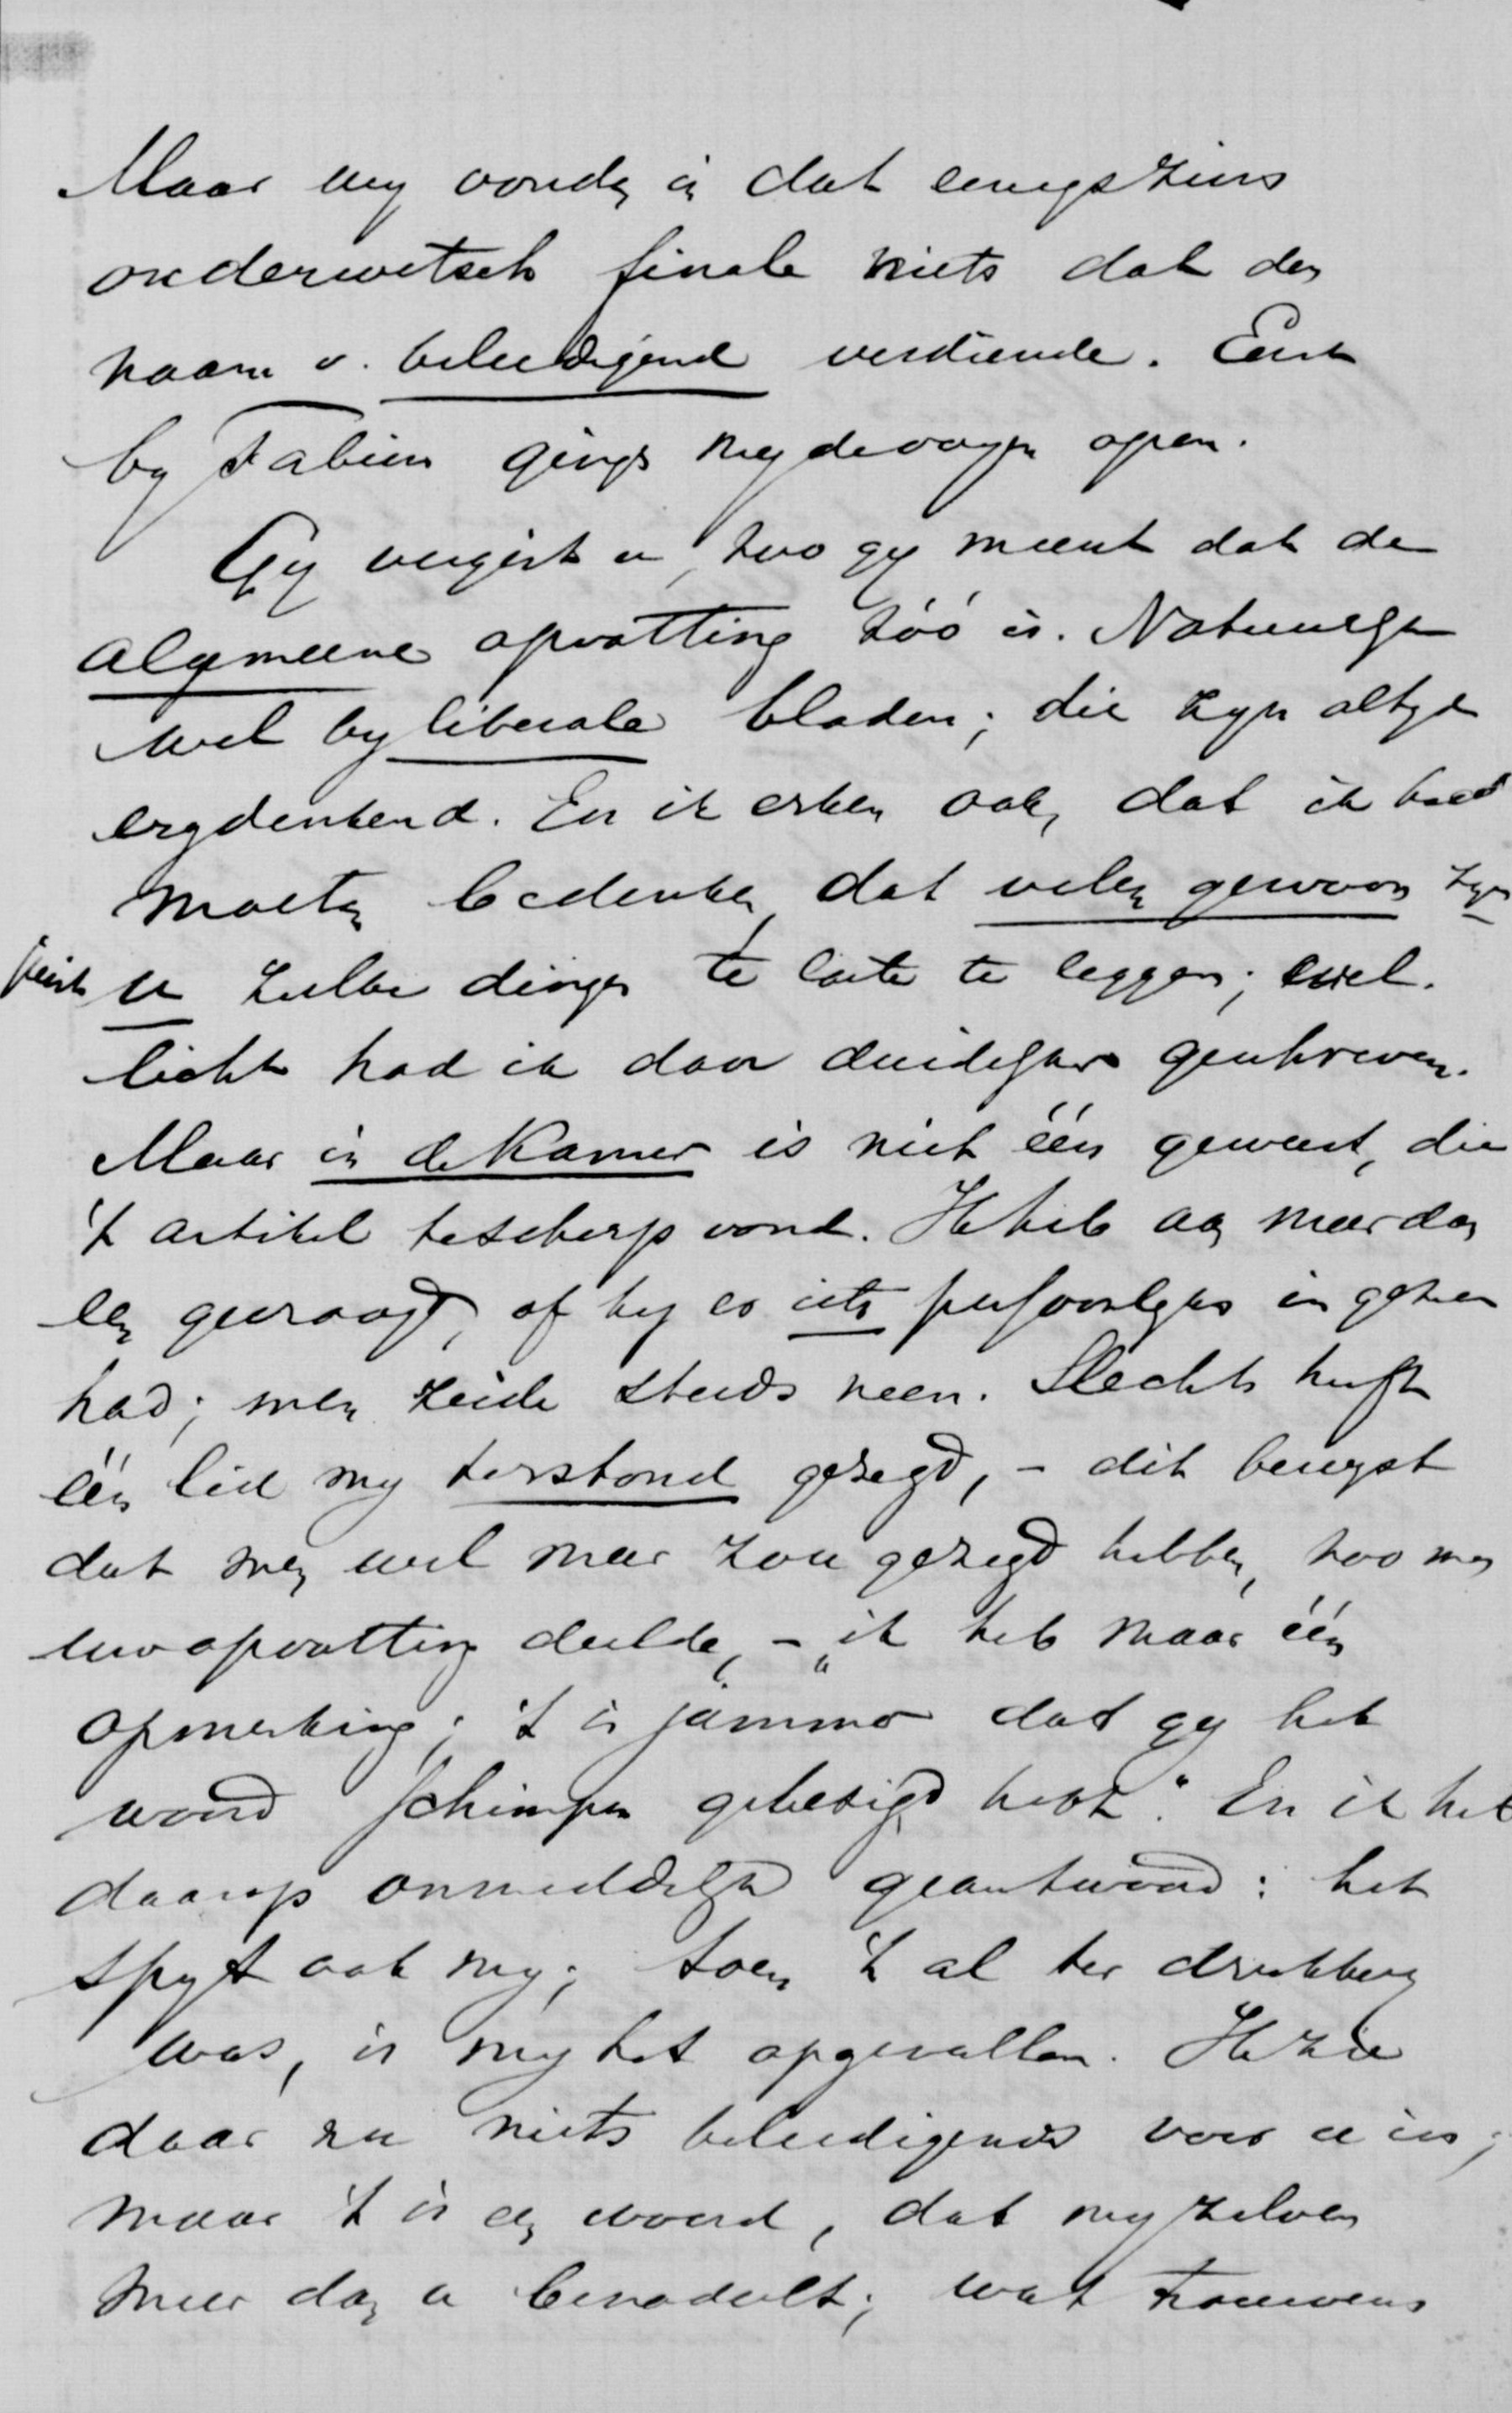 Maar wy vonden in dat eenigszins
onderwetsch finale niets dat den
naam v. beleedigend verdiende. Eerst
by Fabius ging my de oogen open.
Gy vergist u, zoo gy meent dat de
algemeene opvatting zóó is. Natuurlyk
wel by liberale bladen; die zyn altyd
ergdenkend. En ik erken ook, dat ik had
moeten bedenken, dat velen gewoon zyn
juist u zulke dingen te laste te leggen; wel-
licht had ik dan duidelyker geschreven.
Maar in de Kamer is niet één geweest, die
't artikel te scherp vond. Ik heb aan meer dan
een gevraagd, of hy er iets persoonlyks in gezien
had; men zeide steeds neen. Slechts heeft
één lid my terstond gezegd, - dit bewyst
dat men wel meer zou gezegd hebben, zoo men
uw opvatting deelde, - „ik heb maar één
opmerking; 't is jammer dat gy het
woord schimpen gebezigd hebt." En ik heb
daarop onmiddelyk geantwoord: het
spyt ook my; toen 't al ter drukkery
was, is my het opgevallen. Ik zie
daar nu niets beleedigends voor u in;
maar 't is een woord, dat my zelven
meer dan u benadeelt; wat trouwens